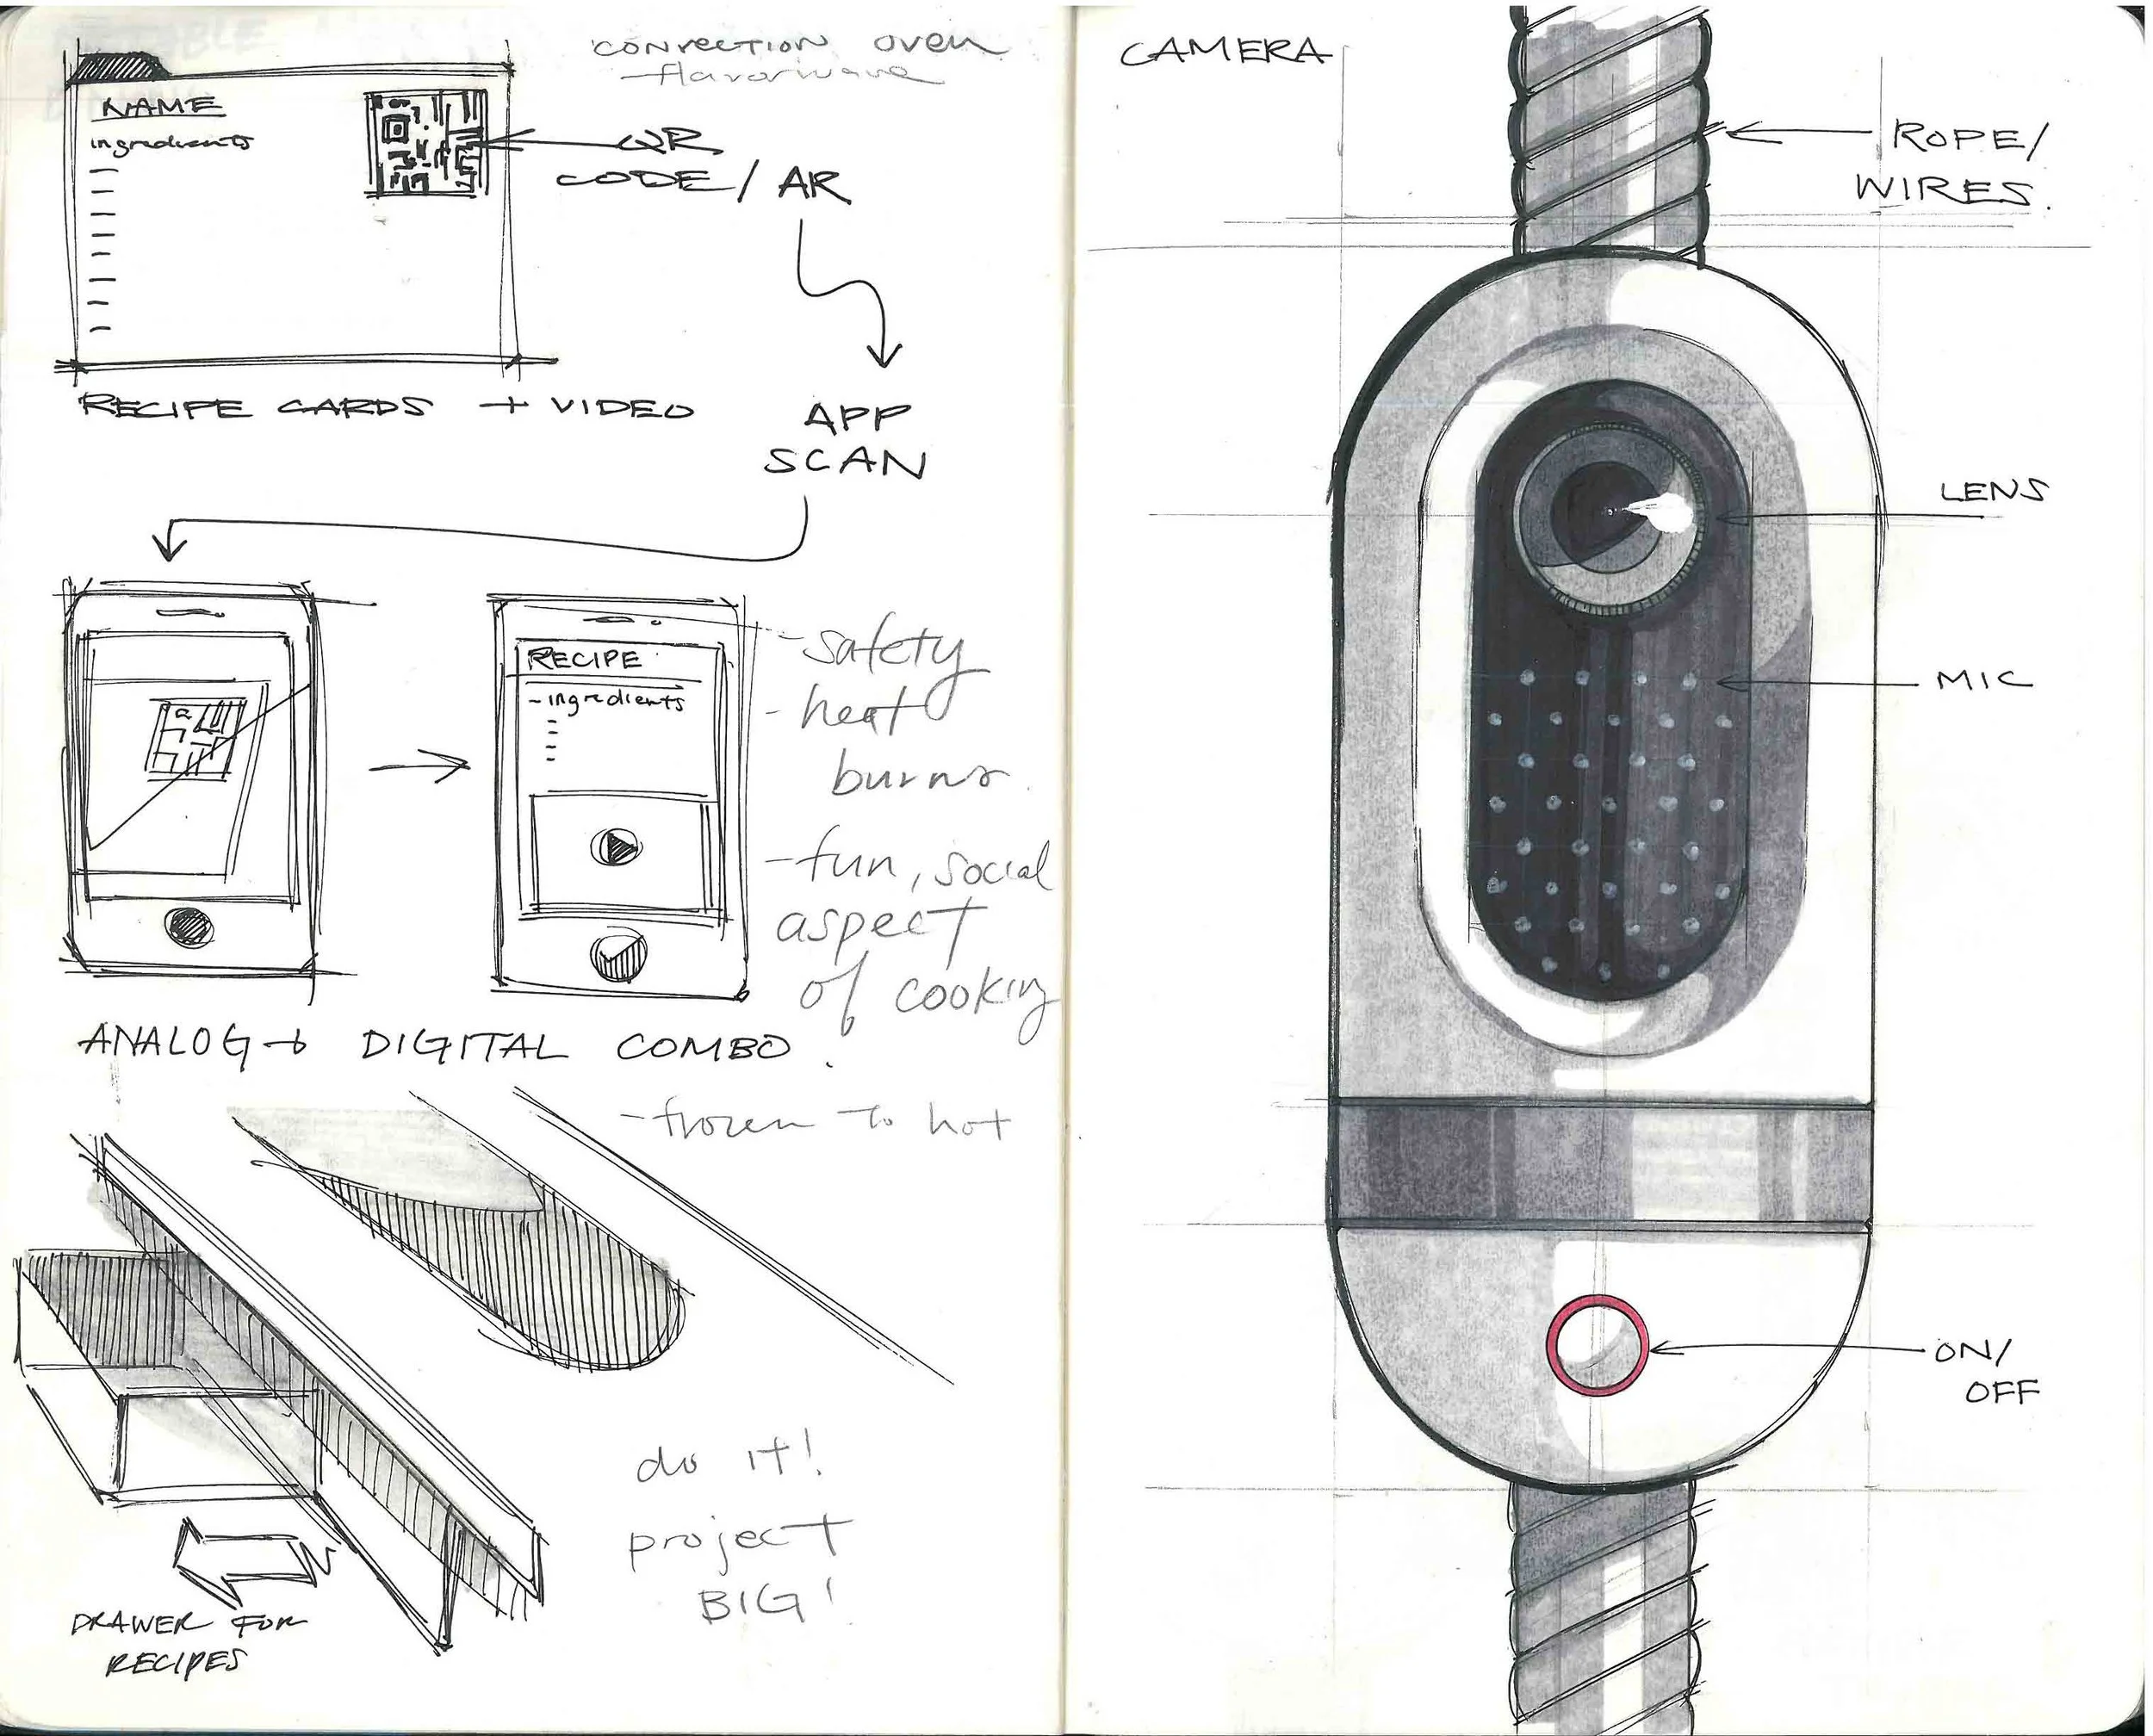 CONVECTION OVEN
flavorwave
NAME
ingredients
QR
CODE / AR
RECIPE CARDS + VIDEO
APP
SCAN
RECIPE
- ingredients
- safety
- heat
burns
- fun, social
aspect
of cooking
ANALOG + DIGITAL COMBO.
- frozen to hot
do it!
project
BIG!
DRAWER FOR
RECIPES
CAMERA
ROPE/
WIRES.
LENS
MIC
ON/
OFF